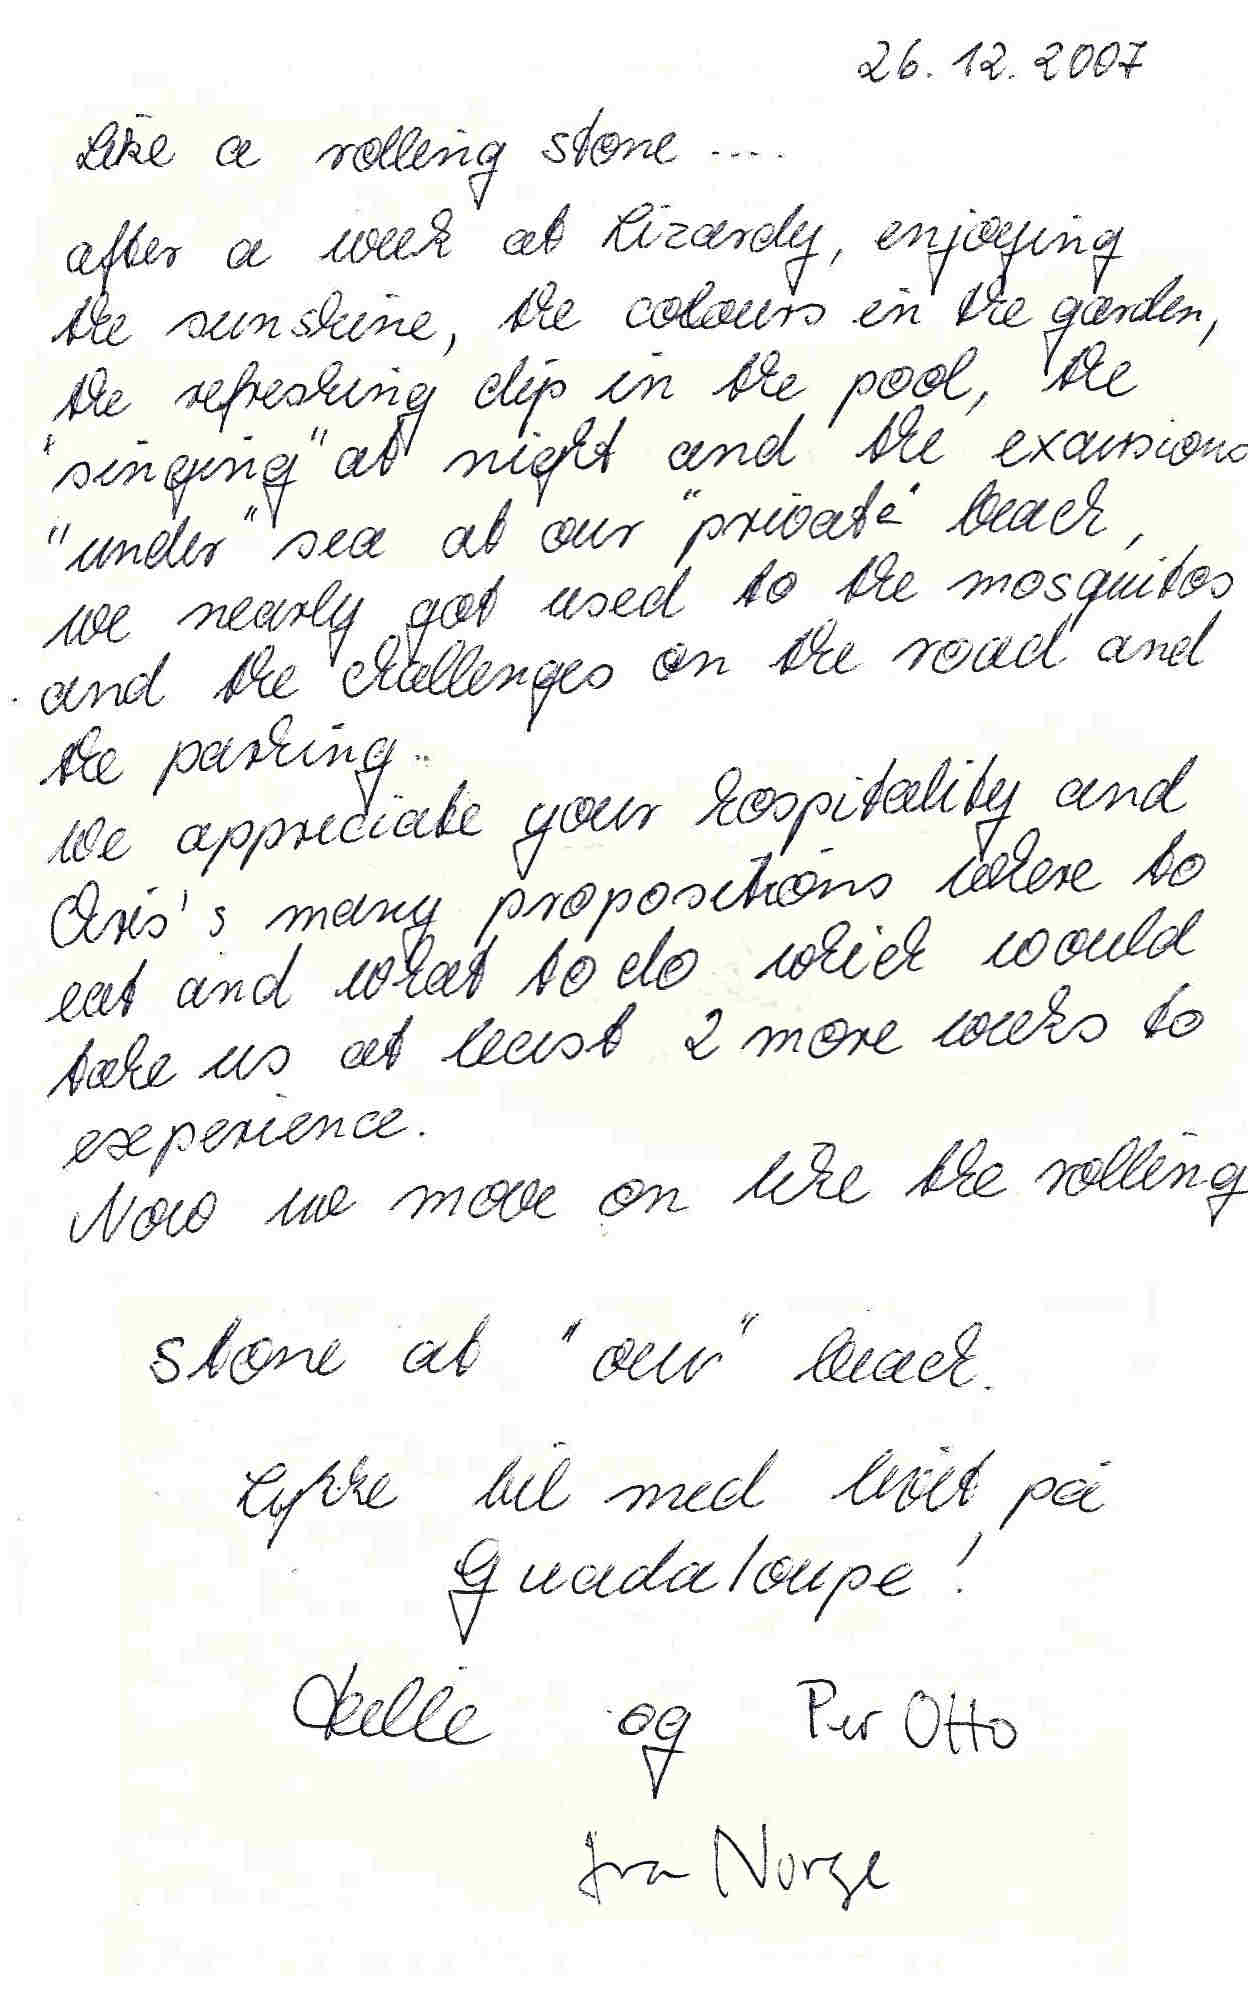 26.12.2007
Like a rolling stone ....
after a week at Lizardy, enjoying
the sunshine, the colours in the garden,
the refreshing dip in the pool, the
"singing" at night and the excursions
"under" sea at our "private" beach,
we nearly got used to the mosquitos
and the challenges on the road and
the parking..
We appreciate your hospitality and
Chris's many propositions where to
eat and what to do which would
take us at least 2 more weeks to
experience.
Now we move on like the rolling
stone at "our" beach.
Lykke til med livet på
Guadaloupe!
og Per Otto
fra Norge